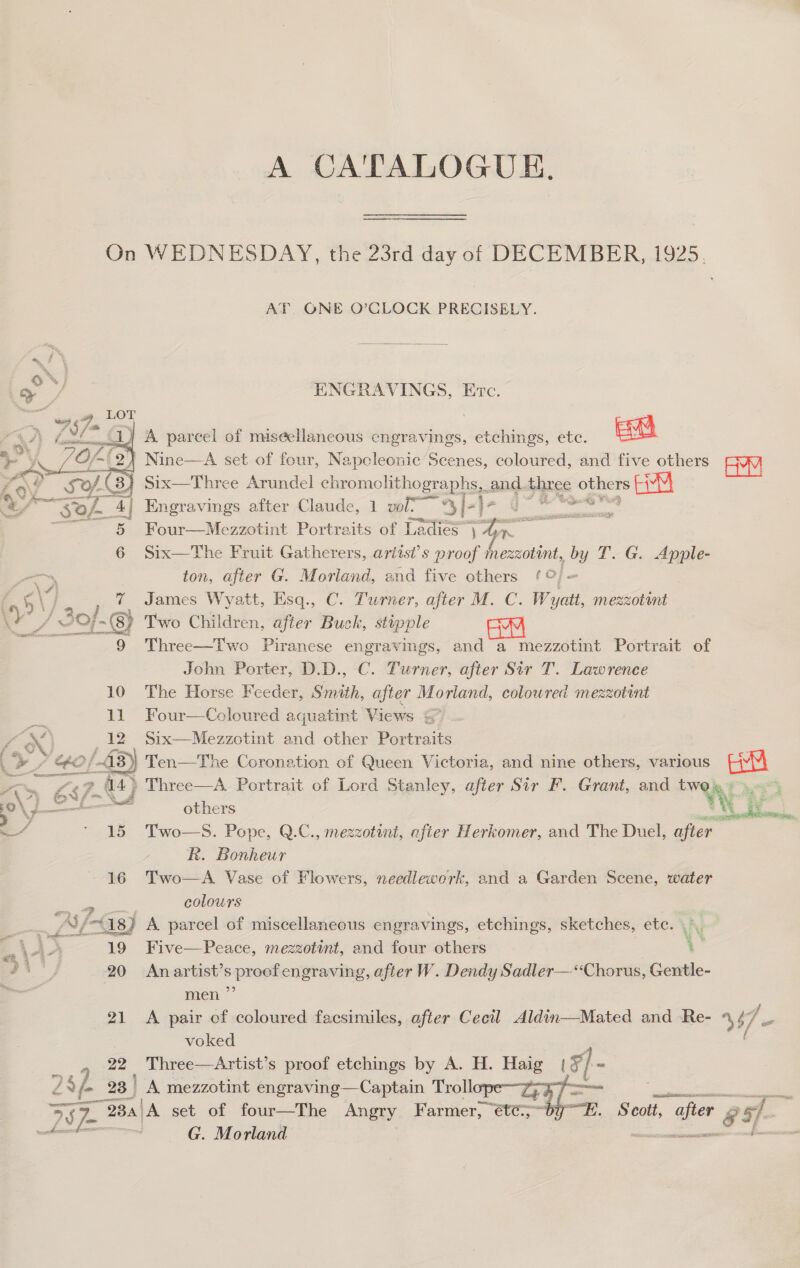 A CATALOGUE.
On WEDNESDAY, the 23rd day of DECEMBER, 1925.
AT ONE O'CLOCK PRECISELY.
ENGRAVINGS, Etc.
LOT
1 A parcel of miscellaneous engravings, etchings, etc.
70/- 2 Nine—A set of four, Napoleonic Scenes, coloured, and five others
50/- 3 Six—Three Arundel chromolithographs, and three others
50/- 4 Engravings after Claude, 1 vol.
5 Four—Mezzotint Portraits of Ladies
6 Six—The Fruit Gatherers, artist's proof mezzotint, by T. G. Apple-
ton, after G. Morland, and five others 10/-
7 James Wyatt, Esq., C. Turner, after M. C. Wyatt, mezzotint
30/- 8 Two Children, after Buck, stipple
9 Three—Two Piranese engravings, and a mezzotint Portrait of
John Porter, D.D., C. Turner, after Sir T. Lawrence
10 The Horse Feeder, Smith, after Morland, coloured mezzotint
11 Four—Coloured aquatint Views
12 Six—Mezzotint and other Portraits
40/- 13 Ten—The Coronation of Queen Victoria, and nine others, various
14 Three—A Portrait of Lord Stanley, after Sir F. Grant, and two
others
15 Two—S. Pope, Q.C., mezzotint, after Herkomer, and The Duel, after
R. Bonheur
16 Two—A Vase of Flowers, needlework, and a Garden Scene, water
colours
18 A parcel of miscellaneous engravings, etchings, sketches, etc.
19 Five—Peace, mezzotint, and four others
20 An artist's proof engraving, after W. Dendy Sadler—"Chorus, Gentle-
men"
21 A pair of coloured facsimiles, after Cecil Aldin—Mated and Re-
voked
22 Three—Artist's proof etchings by A. H. Haig
23 A mezzotint engraving—Captain Trollope
23A A set of four—The Angry Farmer, etc., by E. Scott, after
G. Morland